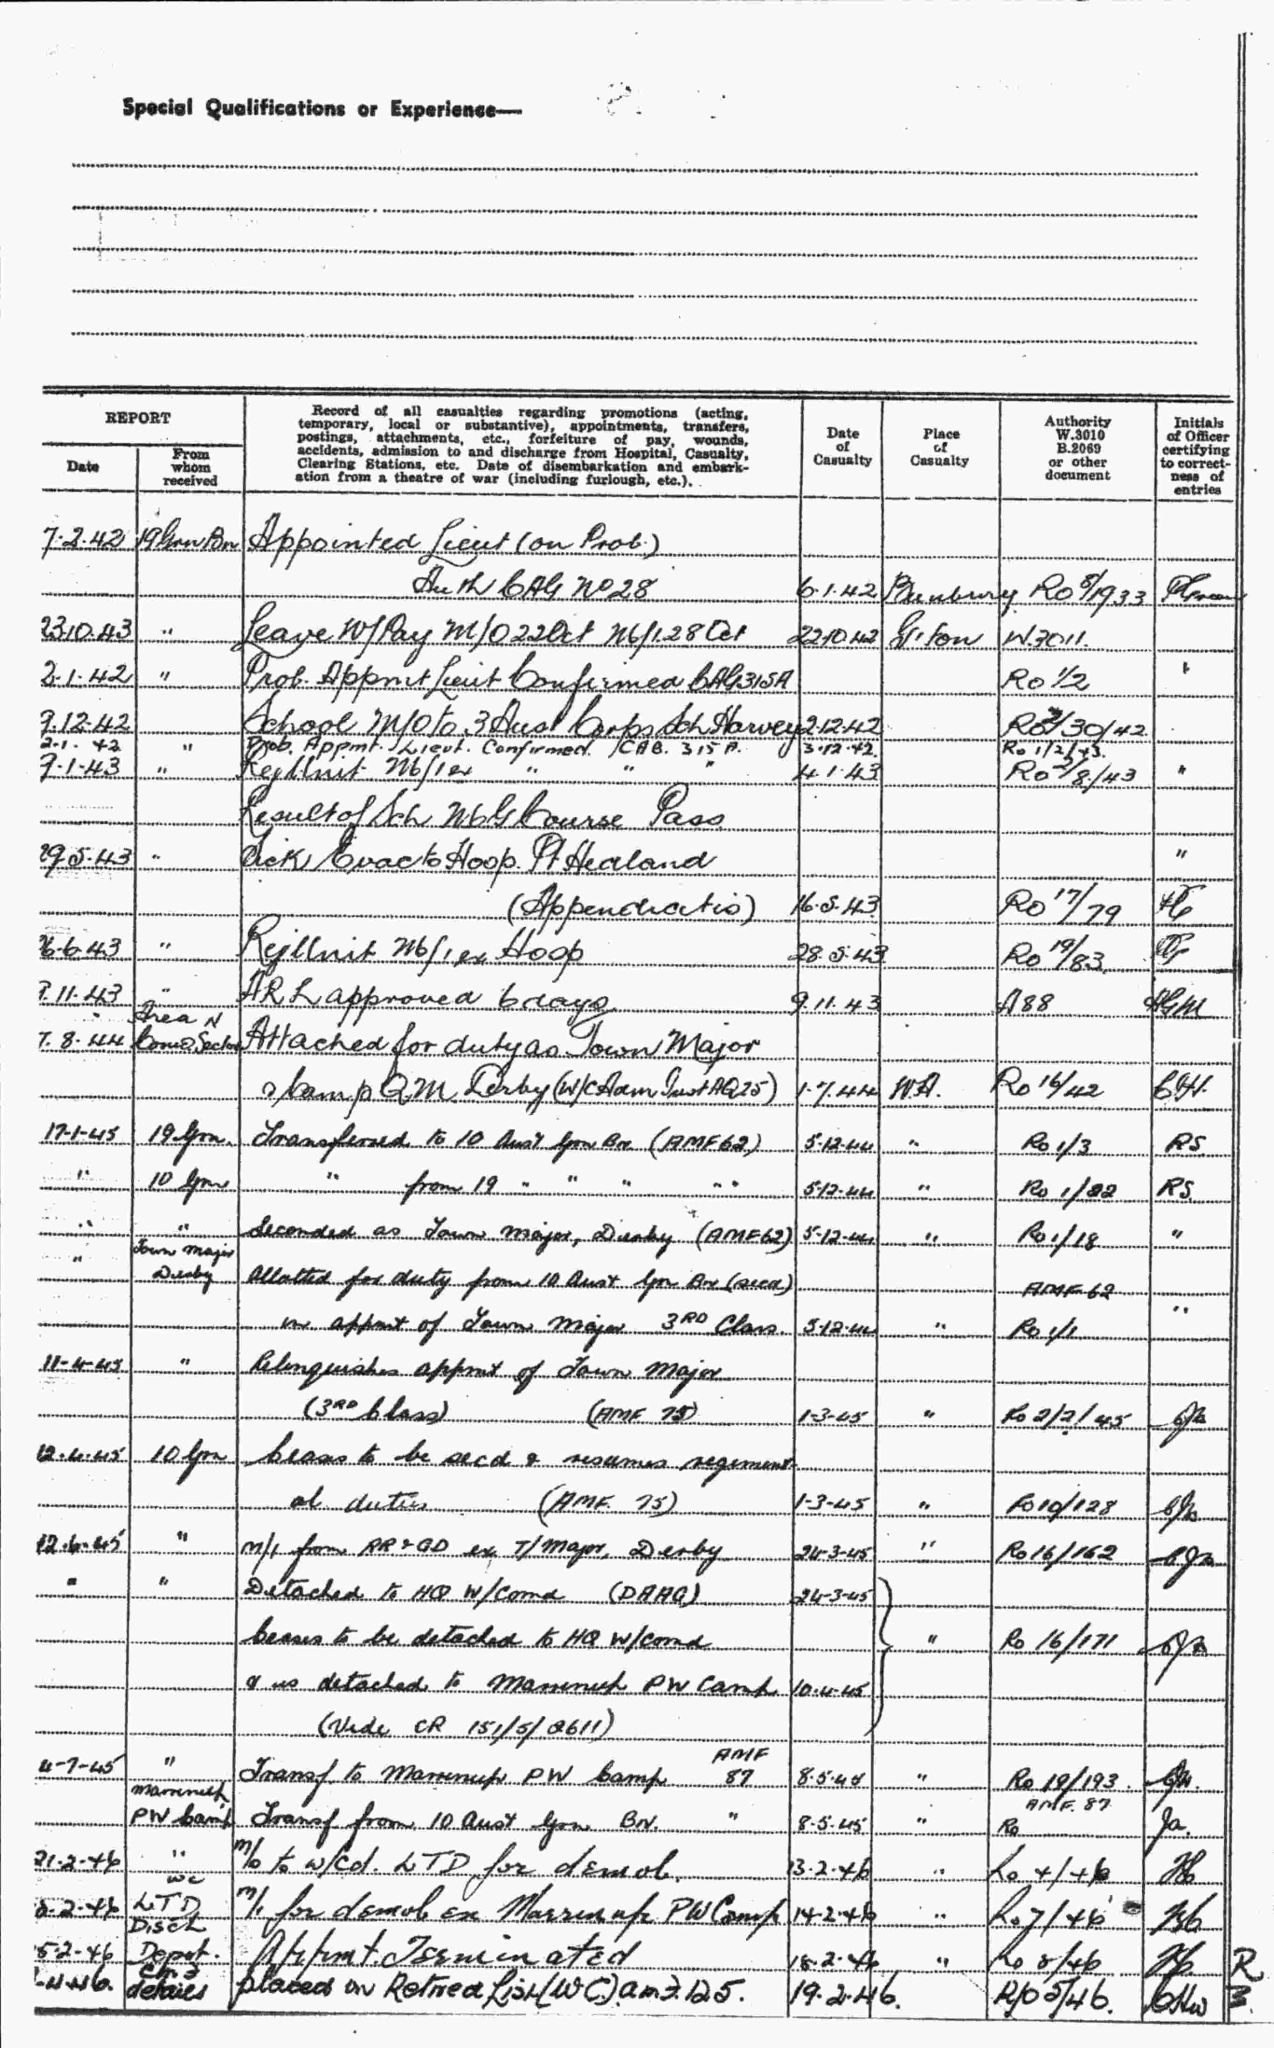 Special Qualifications or Experience—
REPORT
Date
From whom received
Record of all casualties regarding promotions (acting,
temporary, local or substantive), appointments, transfers,
postings, attachments, etc., forfeiture of pay, wounds,
accidents, admission to and discharge from Hospital, Casualty,
Clearing Stations, etc. Date of disembarkation and embark-
ation from a theatre of war (including furlough, etc.).
Date of Casualty
Place of Casualty
Authority W.3010 B.2069 or other document
Initials of Officer certifying to correct-ness of entries
7.2.42 19 Grn Bn Appointed Lieut (on Prob.)
Auth CAG No 28 6.1.42 Bunbury Ro 5/1933
23.10.43 " Leave W/Pay M/O 22 Oct M/I 28 Oct 22.10.42 W.3011.
2.1.42 " Prob. Appmt Lieut Confirmed CAG 315A Ro 1/2 "
9.12.42 School M/O to 3 Aust Corps Sch Harvey 2.12.42 30/42
2.1.42 " Prob. Appmt. Lieut. Confirmed. CAB. 315A. 3.12.42. Ro 1/2/43.
9.1.43 " Rej Unit M/I ex " " " 4.1.43 /8/43 "
Result of Sch M G Course Pass
29.5.43 " Sick Evac to Hosp. Pt Hedland "
(Appendicitis) 16.5.43 Ro 17/79
6.6.43 " Rej Unit M/I ex Hosp 28.5.43 Ro 19/83
9.11.43 " ARL approved 6 days 9.11.43 A88 AGM
7.8.44 Area N Comd Sector Attached for duty as Town Major
& Camp QM Derby (W/C Adm Inst AQ 25) 1.7.44 W.A. Ro 16/42 C.H.
17-1-45 19 Grn. Transferred to 10 Aust Grn Bn (AMF 62) 5-12-44 " Ro 1/3 RS
" 10 Grn " from 19 " " " " " 5-12-44 " Ro 1/22 RS
" " Seconded as Town Major, Derby (AMF 62) 5-12-44 " Ro 1/18 "
" Town Major Derby Allotted for duty from 10 Aust Grn Bn (secd) AMF 62
in appmt of Town Major 3RD Class. 5-12-44 " Ro 1/1 "
11-4-45 " Relinquishes appmt of Town Major
(3RD Class) (AMF 75) 1-3-45 " Ro 2/2/45
12.4.45 10 Grn Ceases to be secd & resumes regiment-
al duties (AMF. 75) 1-3-45 " Ro 10/128
12.6.45 " M/I from RR & GD ex T/Major, Derby 24-3-45 " Ro 16/162
" " Detached to HQ W/Comd (DAAG) 24-3-45
Ceases to be detached to HQ W/Comd " Ro 16/171
& is detached to Marrinup PW Camp 10.4.45
(Vide CR 151/5/2611)
4-7-45 " Transf to Marrinup PW Camp AMF 87 8.5.45 " Ro 19/193.
Marrinup PW Camp Transf from 10 Aust Grn Bn. " 8-5-45 " AMF. 87 Ro Ja.
21-2-46 " M/O to W/Cd. LTD for demob. 13-2-46 " Ro 4/46
2-46 WC LTD M/I for demob ex Marrinup PW Camp 14-2-46 " Ro 7/46
5-2-46 Disch Depot. Appmt. Terminated 18-2-46 " Ro 8/46 R
4.46. details placed on Retired List (WC) AMF. 125. 19.2.46. R/O 5/46. 3